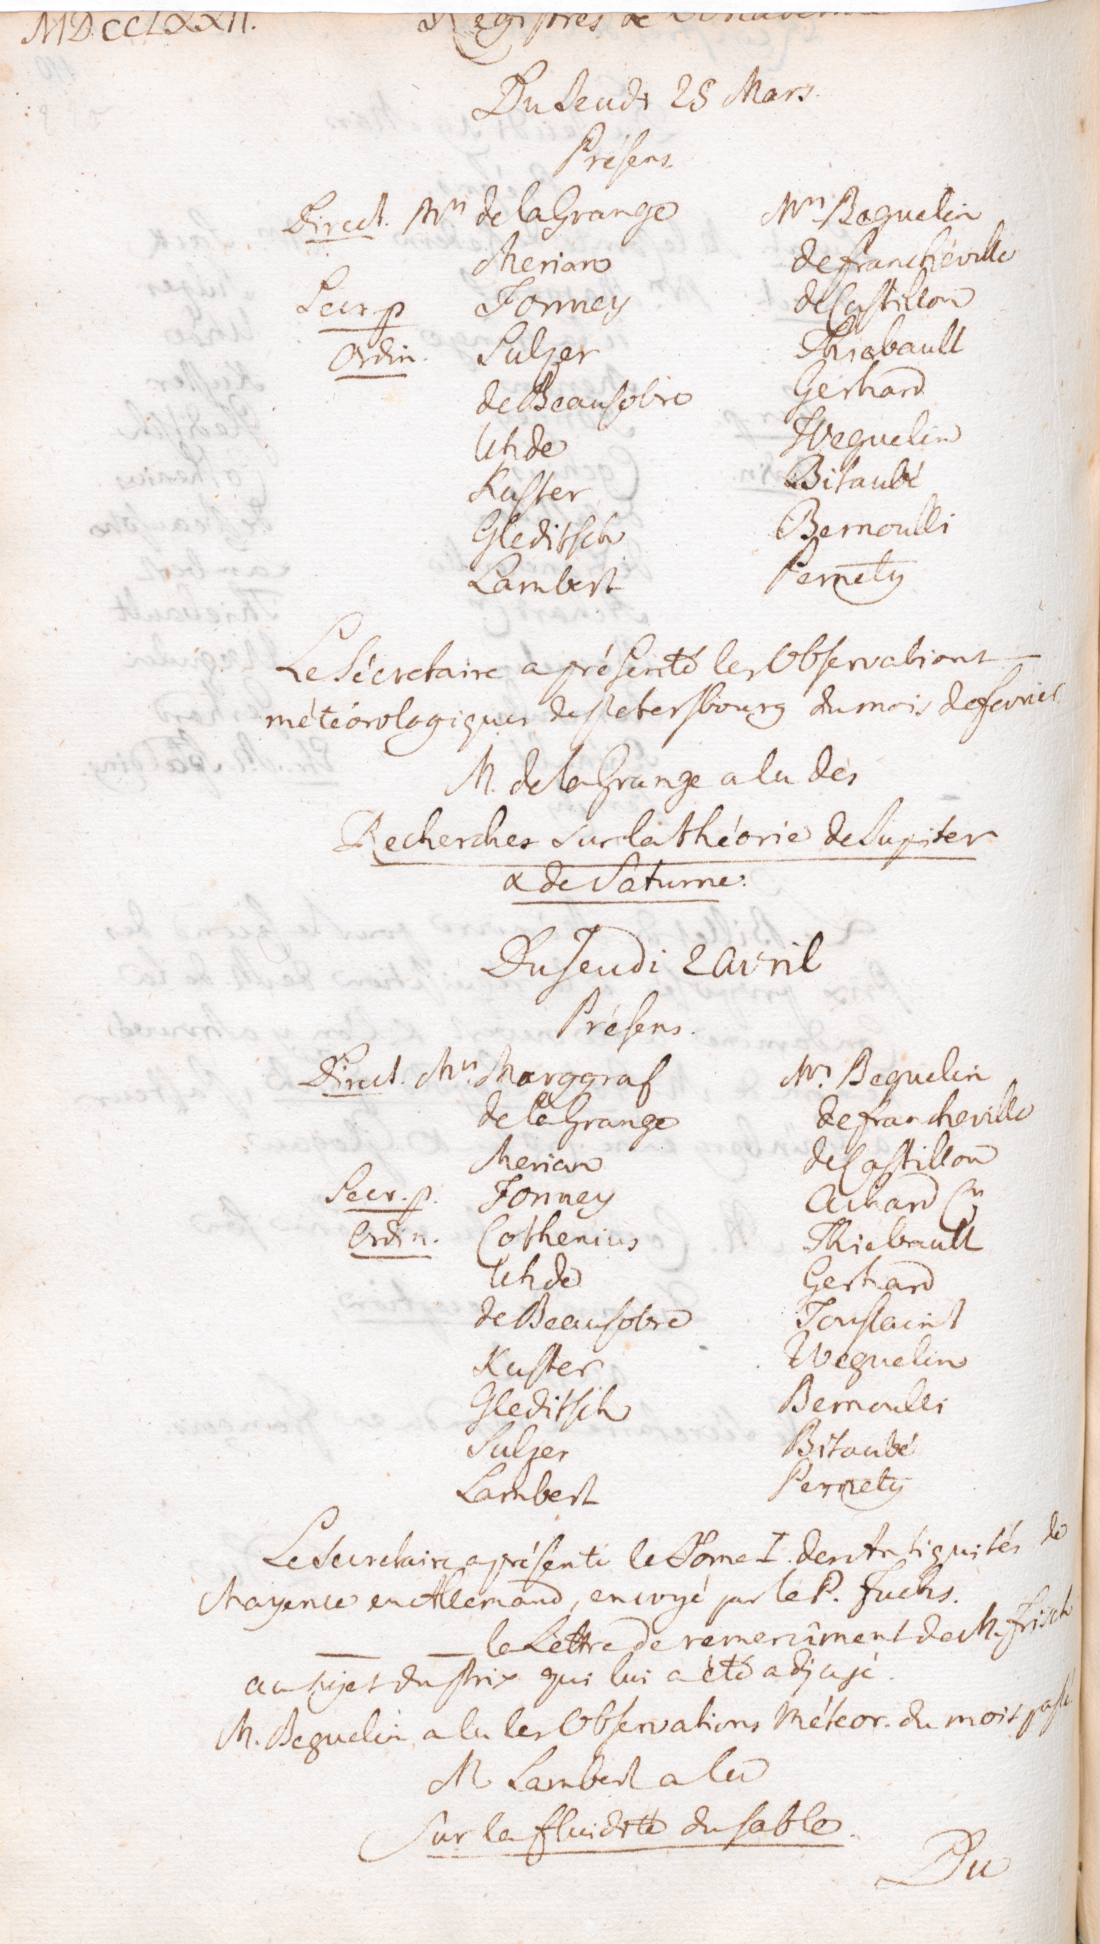 MDCCLXXII.
Registres de
Du Jeudi 25 Mars.
Présens
Direct. Mrs de la Grange
Merian
Secr. p Formey
Ordin. Sulzer
de Beausobre
Uhde
Kuster
Gleditsch
Lambert
Mrs Beguelin
de francheville
de Castillon
Thiebault
Gerhard
Weguelin
Bitaubé
Bernoulli
Pernety
Le Sécretaire a présenté les Observations
météorologiques de Petersbourg du mois de fevrier
M. de la Grange a lu des
Recherches sur la théorie de Jupiter
& de Saturne.
Du Jeudi 2 avril
Présens.
Direct. Mrs. Marggraf
de la Grange
Merian
Secr. p. Formey
Ordin. Cothenius
Uhde
de Beausobre
Kuster
Gleditsch
Sulzer
Lambert
Mrs Beguelin
de francheville
de Castillon
Achard
Thiebault
Gerhard
Toussaint
Weguelin
Bernoulli
Bitaubé
Pernety
Le Secretaire a présenté le Tome I. des Antiquités de
Mayence en Allemand, envoyé par le P. Fuchs.
la Lettre de remercîment de M. Frisch
au sujet du prix qui lui a été adjugé.
M. Beguelin a lu les Observations Météor. du mois passé
M Lambert a lu
Sur la fluidité du sable.
Du